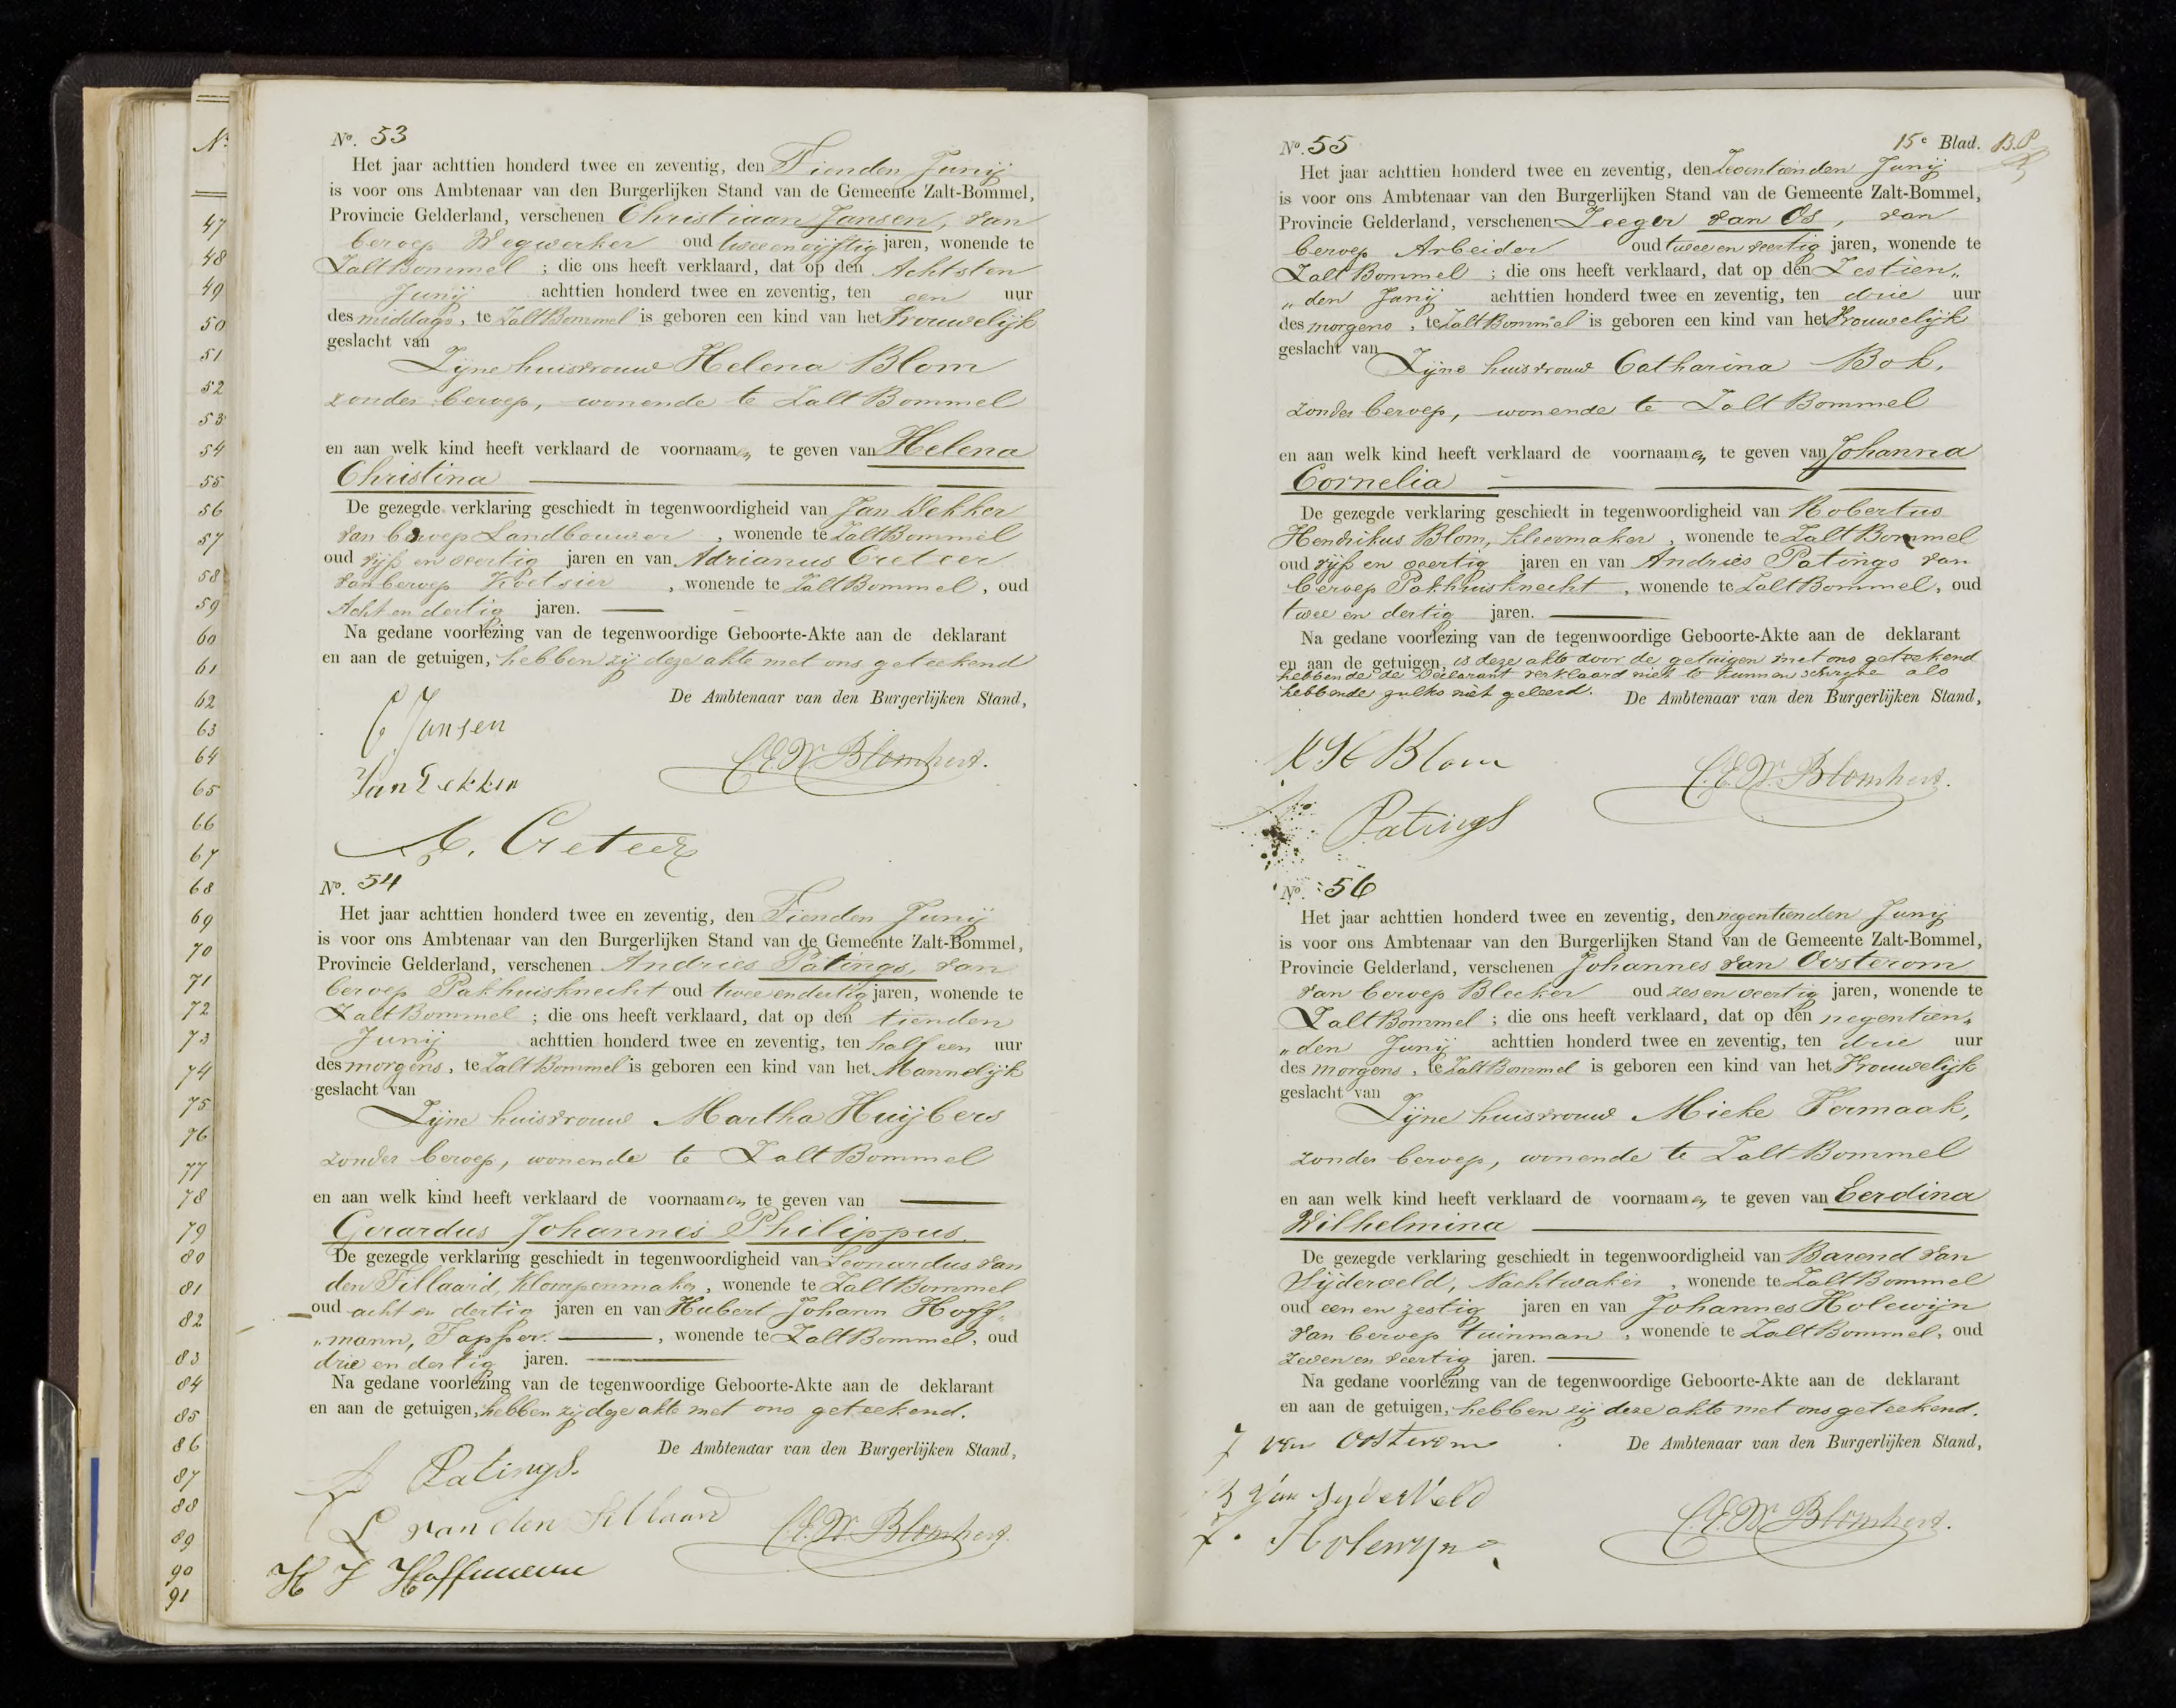 Nº
47
48
49
50
51
52
53
54
55
56
57
58
59
60
61
62
63
64
65
66
67
68
69
70
71
72
73
74
75
76
77
78
79
80
81
82
83
84
85
86
87
88
89
90
91
Nº. 53
Het jaar achttien honderd twee en zeventig, den Tienden Junij
is voor ons Ambtenaar van den Burgerlijken Stand van de Gemeente Zalt-Bommel,
Provincie Gelderland, verschenen Christiaan Jansen, van
beroep Wegwerker oud twee en vijftig jaren, wonende te
Zalt Bommel ; die ons heeft verklaard, dat op den Achtsten
Junij achttien honderd twee en zeventig, ten een uur
des middags, te Zalt Bommel is geboren een kind van het Vrouwelijk
geslacht van
Zijne huisvrouw Helena Blom
zonder beroep, wonende te Zalt Bommel
en aan welk kind heeft verklaard de voornaamen te geven van Helena
Christina
De gezegde verklaring geschiedt in tegenwoordigheid van Jan Dekker
van beroep Landbouwer , wonende te Zalt Bommel
oud vijf en veertig jaren en van Adrianus Creteer
van beroep Koetsier , wonende te Zalt Bommel, oud
Acht en dertig jaren.
Na gedane voorlezing van de tegenwoordige Geboorte-Akte aan de deklarant
en aan de getuigen, hebben zij deze akte met ons geteekend
De Ambtenaar van den Burgerlijken Stand,
C Jansen
Jan Dekker
C.E.W. Blomhert.
A. Creteer
Nº. 54
Het jaar achttien honderd twee en zeventig, den Tienden Junij
is voor ons Ambtenaar van den Burgerlijken Stand van de Gemeente Zalt-Bommel,
Provincie Gelderland, verschenen Andries Patings, van
beroep Pakhuisknecht oud twee en dertig jaren, wonende te
Zalt Bommel ; die ons heeft verklaard, dat op den tienden
Junij achttien honderd twee en zeventig, ten half een uur
des morgens, te Zalt Bommel is geboren een kind van het Mannelijk
geslacht van
Zijne huisvrouw Martha Huijbers
zonder beroep, wonende te Zalt Bommel
en aan welk kind heeft verklaard de voornaamen te geven van
Gerardus Johannes Philippus.
De gezegde verklaring geschiedt in tegenwoordigheid van Leonardus van
den Tillaard, Klompenmaker, wonende te Zalt Bommel
oud acht en dertig jaren en van Hubert Johann Hoff„
„mann, Tapper , wonende te Zalt Bommel, oud
drie en dertig jaren.
Na gedane voorlezing van de tegenwoordige Geboorte-Akte aan de deklarant
en aan de getuigen, hebben zij dze akte met ons geteekend.
De Ambtenaar van den Burgerlijken Stand,
A Patings.
L van den Tillaard
C.E.W. Blomhert.
H J Hoffmann
15e Blad. B.P.
Nº. 55
Het jaar achttien honderd twee en zeventig, den Zeventienden Junij
is voor ons Ambtenaar van den Burgerlijken Stand van de Gemeente Zalt-Bommel,
Provincie Gelderland, verschenen Zeeger van Os, van
beroep Arbeider oud twee en veertig jaren, wonende te
Zalt Bommel ; die ons heeft verklaard, dat op den Zestien„
„den Junij achttien honderd twee en zeventig, ten drie uur
des morgens, te Zalt Bommel is geboren een kind van het Vrouwelijk
geslacht van
Zijne huisvrouw Catharina Bok,
zonder beroep, wonende te Zalt Bommel
en aan welk kind heeft verklaard de voornaamen te geven van Johanna
Cornelia
De gezegde verklaring geschiedt in tegenwoordigheid van Robertus
Hendrikus Blom, kleermaker, wonende te Zalt Bommel
oud vijf en veertig jaren en van Andries Patings van
beroep Pakhuisknecht, wonende te Zalt Bommel, oud
twee en dertig jaren.
Na gedane voorlezing van de tegenwoordige Geboorte-Akte aan de deklarant
en aan de getuigen, is deze akte door de getuigen met ons geteekend
hebbende de Declarant verklaard niet te kunnen schrijve als
hebbende zulks niet geleerd. De Ambtenaar van den Burgerlijken Stand,
R H Blom
C.E.W. Blomhert.
Patings
Nº. 56
Het jaar achttien honderd twee en zeventig, den negentienden Junij
is voor ons Ambtenaar van den Burgerlijken Stand van de Gemeente Zalt-Bommel,
Provincie Gelderland, verschenen Johannes van Oosterom
van beroep Bleeker oud zes en veertig jaren, wonende te
Zalt Bommel ; die ons heeft verklaard, dat op den negentien„
„den Junij achttien honderd twee en zeventig, ten drie uur
des morgens, te Zalt Bommel is geboren een kind van het Vrouwelijk
geslacht van
Zijne huisvrouw Mieke Vermaak,
zonder beroep, wonende te Zalt Bommel
en aan welk kind heeft verklaard de voornaamen te geven van Eerdina
Wilhelmina
De gezegde verklaring geschiedt in tegenwoordigheid van Barend van
Sijderveld, Nachtwaker, wonende te Zalt Bommel
oud een en zestig jaren en van Johannes Holewijn
van beroep tuinman, wonende te Zalt Bommel, oud
zeven en veertig jaren.
Na gedane voorlezing van de tegenwoordige Geboorte-Akte aan de deklarant
en aan de getuigen, hebben zij deze akte met ons geteekend.
J van Oosterom
De Ambtenaar van den Burgerlijken Stand,
B van Syderveld
C.E.W. Blomhert.
J. Holewyn